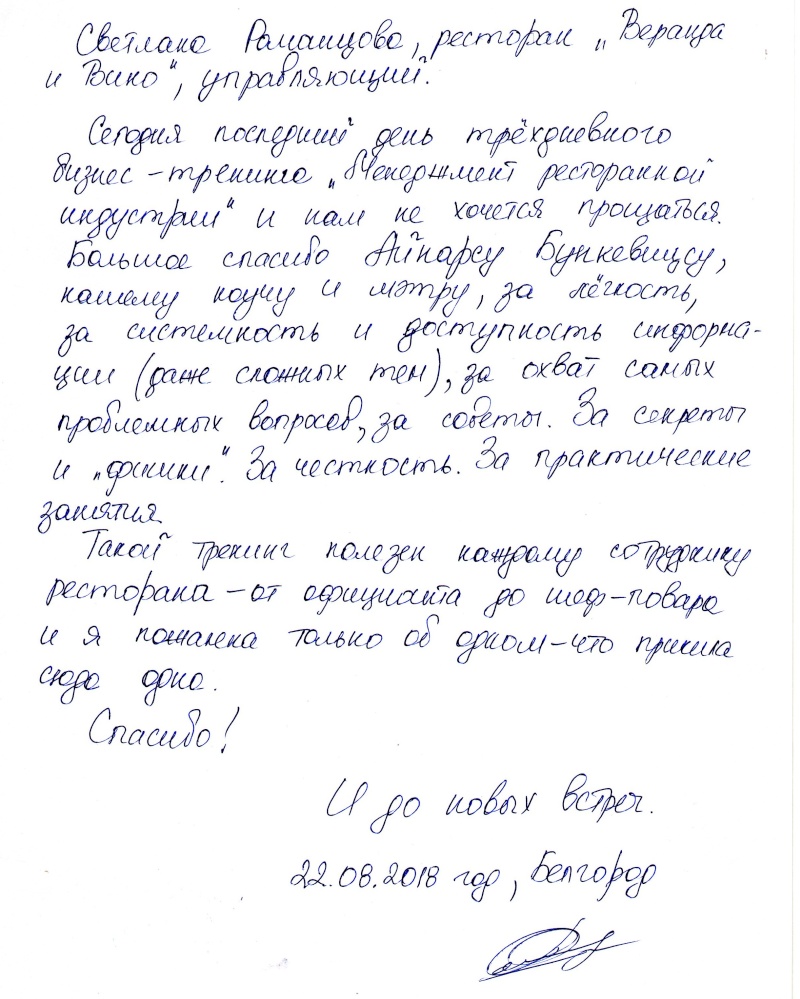 Светлана Романцова, ресторан „Веранда
и Вино“, управляющий.
Сегодня последний день трёхдневного
бизнес-тренинга „Менеджмент ресторанной
индустрии“ и нам не хочется прощаться.
Большое спасибо Айнарсу Бункевицсу,
нашему коучу и мэтру, за лёгкость,
за системность и доступность информа-
ции (даже сложных тем), за охват самых
проблемных вопросов, за советы. За секреты
и „фишки“. За честность. За практические
занятия.
Такой тренинг полезен каждому сотруднику
ресторана – от официанта до шеф-повара
и я пожалела только об одном – что пришла
сюда одна.
Спасибо!
И до новых встреч.
22.08.2018 год, Белгород